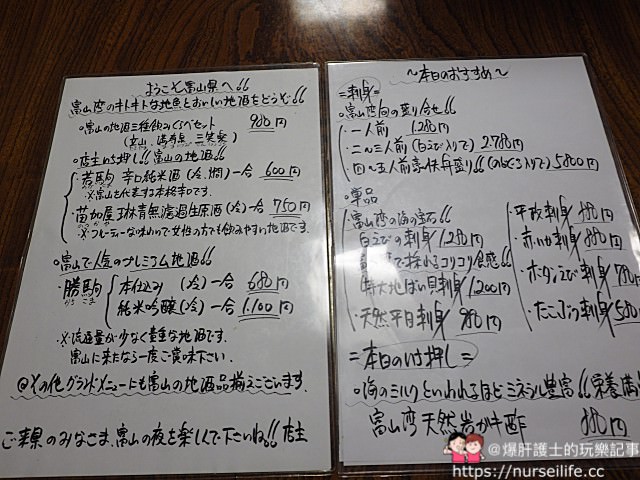 ようこそ富山県へ!!
富山湾のキトキトな地魚とおいしい地酒をどうぞ!!
◦富山の地酒三種飲みくらべセット 980円
(立山・満寿泉・三笑楽)
◦店主いち押し!! 富山の地酒!!
・若駒 辛口純米酒(冷、燗)一合 600円
※富山を代表する本格辛口です。
・苗加屋 琳青無濾過生原酒(冷)一合 750円
※フルーティーな味わいで女性の方でも飲みやすい地酒です。
◦富山で人気のプレミアム地酒!!
・勝駒 本仕込み (冷)一合 680円
かちこま 純米吟醸(冷)一合 1.100円
※流通量が少なく貴重な地酒です。
富山に来たなら一度ご賞味下さい。
@その他グランドメニューも富山の地酒品揃えございます。
ご来県のみなさま、富山の夜を楽しんで下さいね!! 店主
〜本日のおすすめ〜
=刺身=
富山湾の盛り合せ!!
・一人前 1.280円
・二〜三人前(白えび入りで) 2.780円
・四〜五人前豪快舟盛り!!(入りで) 5800円
◦単品
富山湾の海の宝石!!
白えびの刺身 1.280円
で採れるコリコリ食感!!
特大地ばい貝刺身 1.200円
・天然平目刺身 980円
・平政刺身
・赤いか刺身 880円
・ボタンえび刺身
・たこぶつ刺身
=本日のいち押し=
◦海のミルクといわれるほどミネラル豊富!! 栄養満
富山湾天然岩がキ酢 880円
@爆肝護士的玩樂記事
https://nurseilife.cc